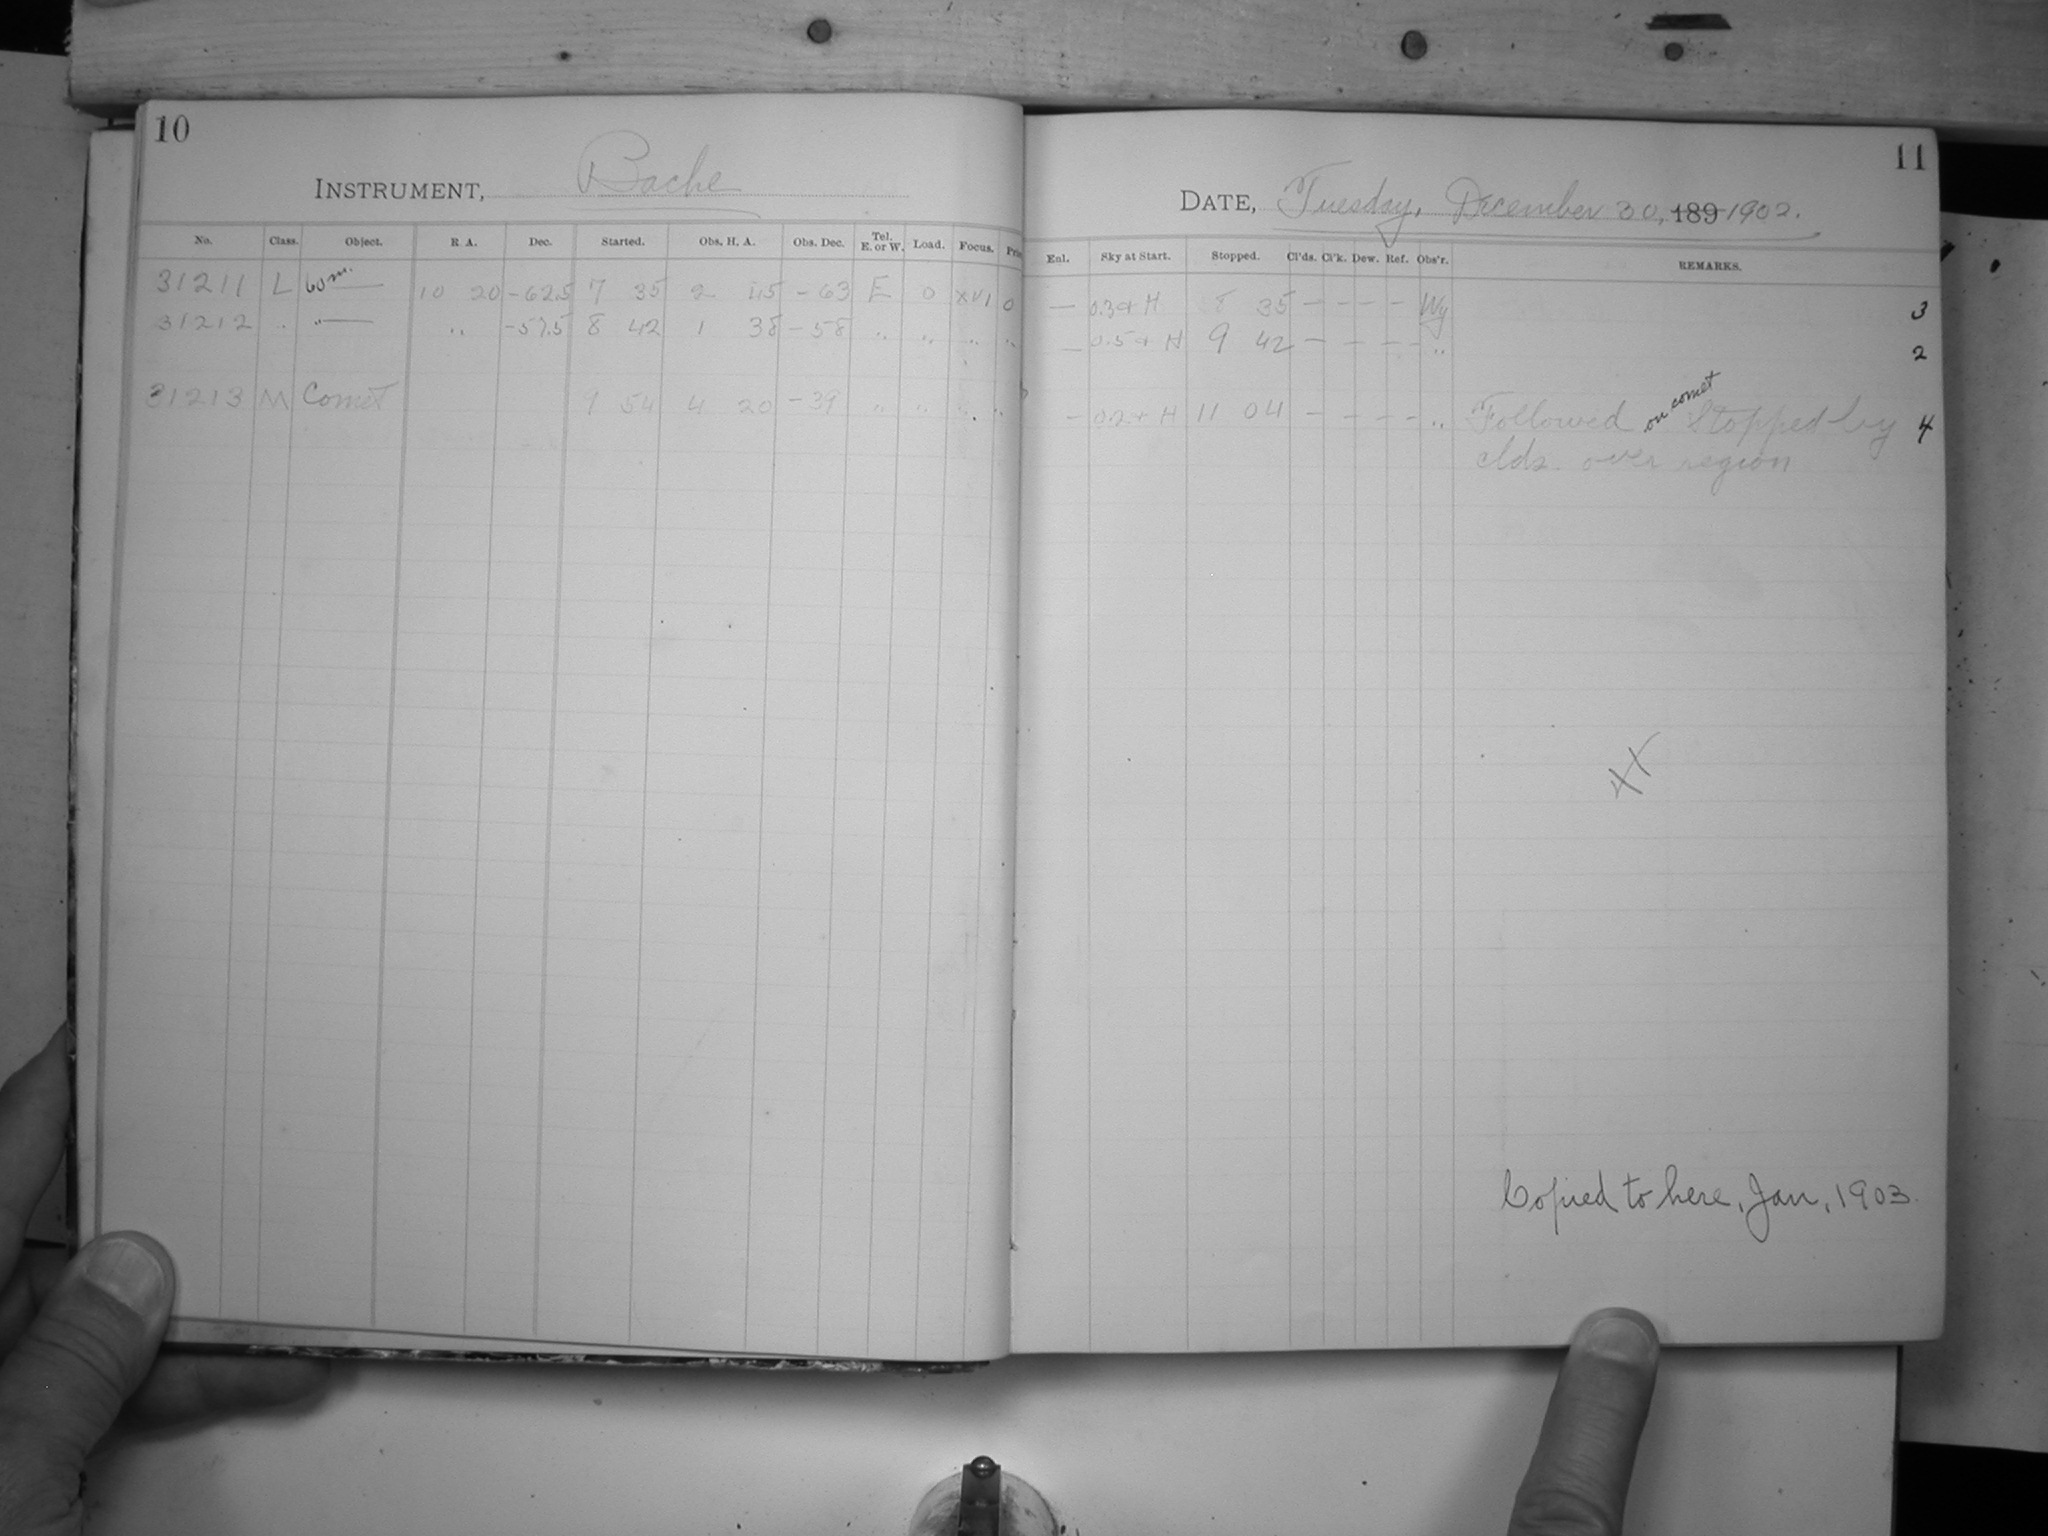 10
INSTRUMENT, Bache
No. Class. Object. R. A. Dec. Started. Obs. H. A. Obs. Dec. Tel. E. or W. Load. Focus.
31211 L 60m. 10 20 -62.5 7 35 2 45 -63 E 0 XVI 0
31212 " " " -57.5 8 42 1 38 -58 " " " "
31213 M Comet 9 54 4 20 -39 " " " "
11
DATE, Tuesday, December 30, 189 1902.
Enl. Sky at Start. Stopped. Cl'ds. Cl'k. Dew. Ref. Obs'r. REMARKS.
— 0.3+ H 8 35 — — — — Wy 3
— 0.5+ H 9 42 — — — — " 2
— 0.2+ H 11 04 — — — — " Followed on comet Stopped by 4
clds. over region
Copied to here, Jan, 1903.